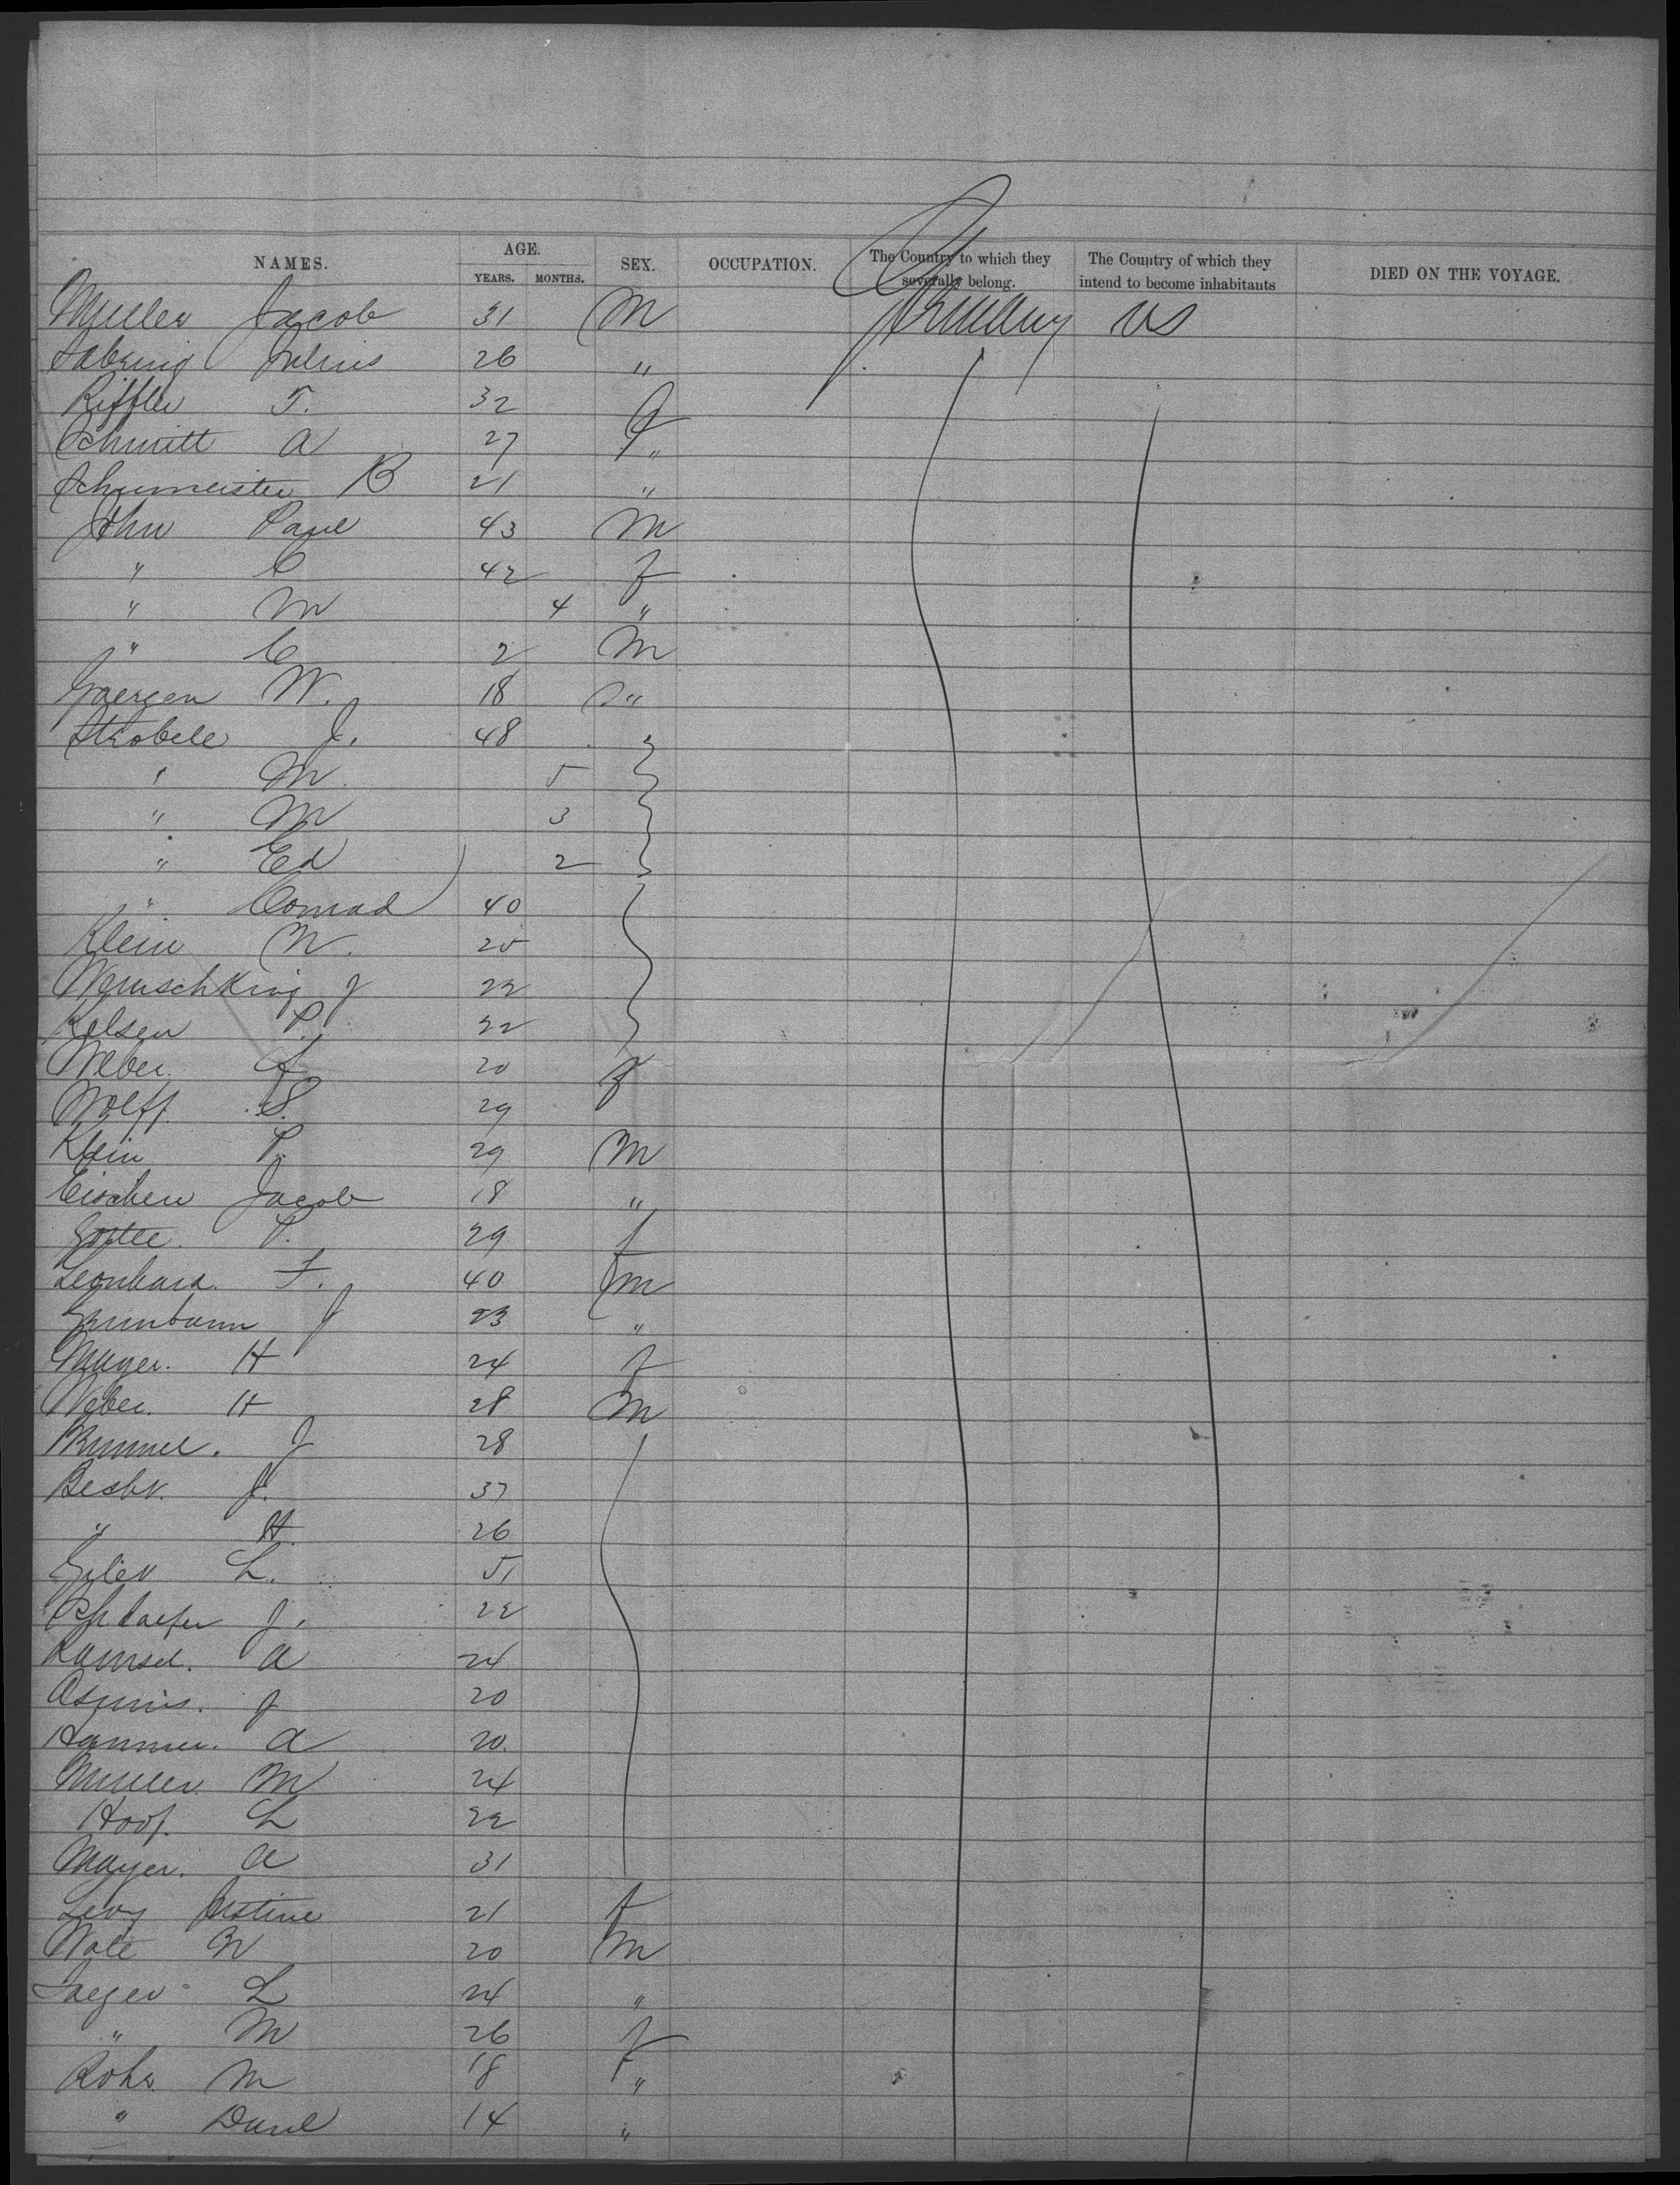 NAMES. AGE. YEARS. MONTHS. SEX. OCCUPATION. The Country to which they severally belong. The Country of which they intend to become inhabitants DIED ON THE VOYAGE.
Muller Jacob 31 M Germany US
Julius 26 "
Riffler T. 32 f
Schmitt A 27 "
Schumeister B 21 "
John Paul 43 M
" C 42 f
" M 4 "
" C 2 M
Goergen W. 18 "
Strobele J. 48
" M. 5
" M 3
" Ed 2
" Conrad 40
Klein N. 25
J 22
Kelsen P. 22
Weber 20 f
Wolff. S. 29
Klein P. 29 M
Eischen Jacob 18 "
P. 29 f
Leonhard. F. 40 M
Grunbaum J 23 "
Mayer. H 24 f
Weber. H 28 M
J 28
J. 37
" H. 26
L. 51
J. 22
A 24
J 20
Hammer. A 20.
Muller M 24
Hoof. L 22
Mayer. A 31
Levy Justine 21 f
W 20 M
Jaeger L 24 "
" M 26 f
Rohr. M 18 "
" 14 "